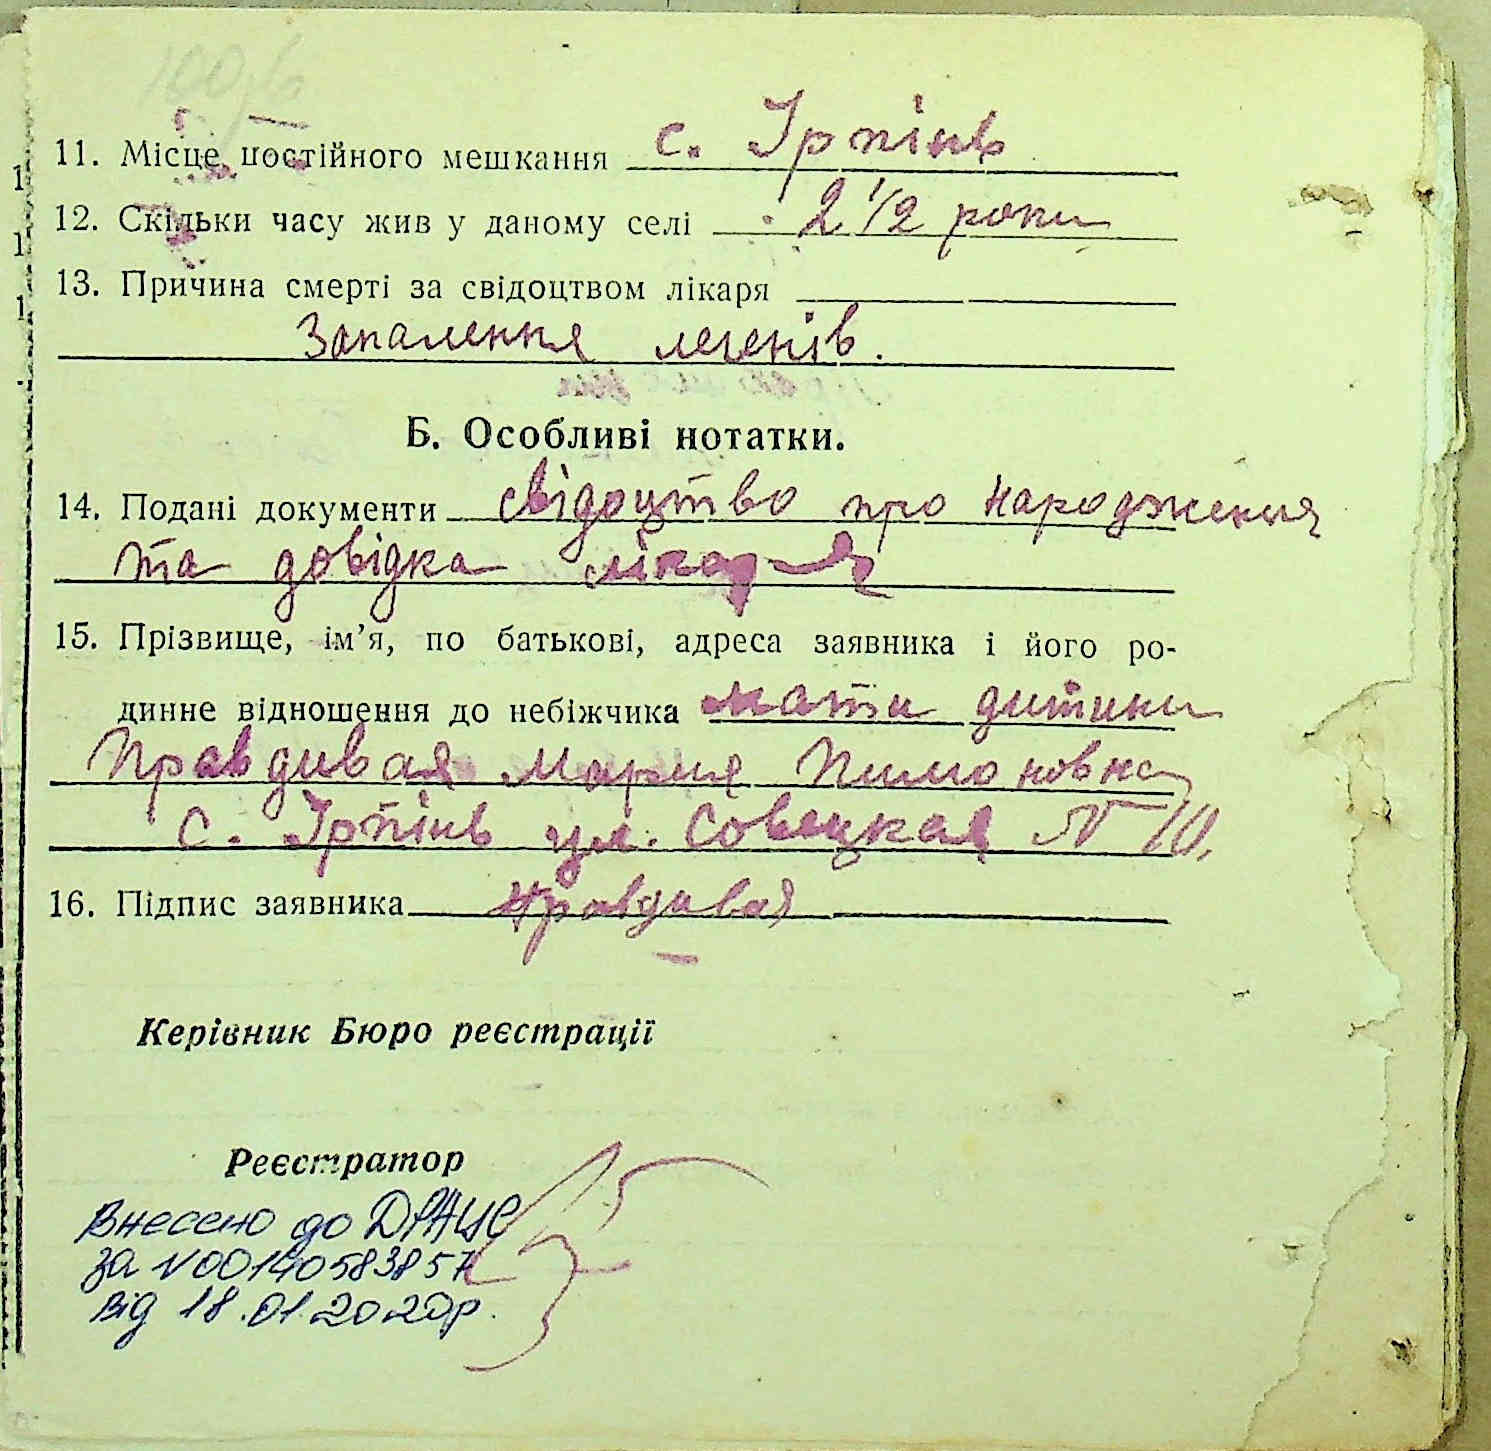 11. Місце постійного мешкання с. Ірпінь
12. Скільки часу жив у даному селі 2 1/2 роки
13. Причина смерті за свідоцтвом лікаря
Запалення легенів.
Б. Особливі нотатки.
14. Подані документи свідоцтво про народження
та довідка лікаря
15. Прізвище, ім’я, по батькові, адреса заявника і його ро-
динне відношення до небіжчика мати дитини
Правдивая Мария Пимоновна
с. Ірпінь ул. Совецкая № 10.
16. Підпис заявника Правдивая
Керівник Бюро реєстрації
Реєстратор
Внесено до ДРАЦС
за №00140583857
від 18.01.2020р.